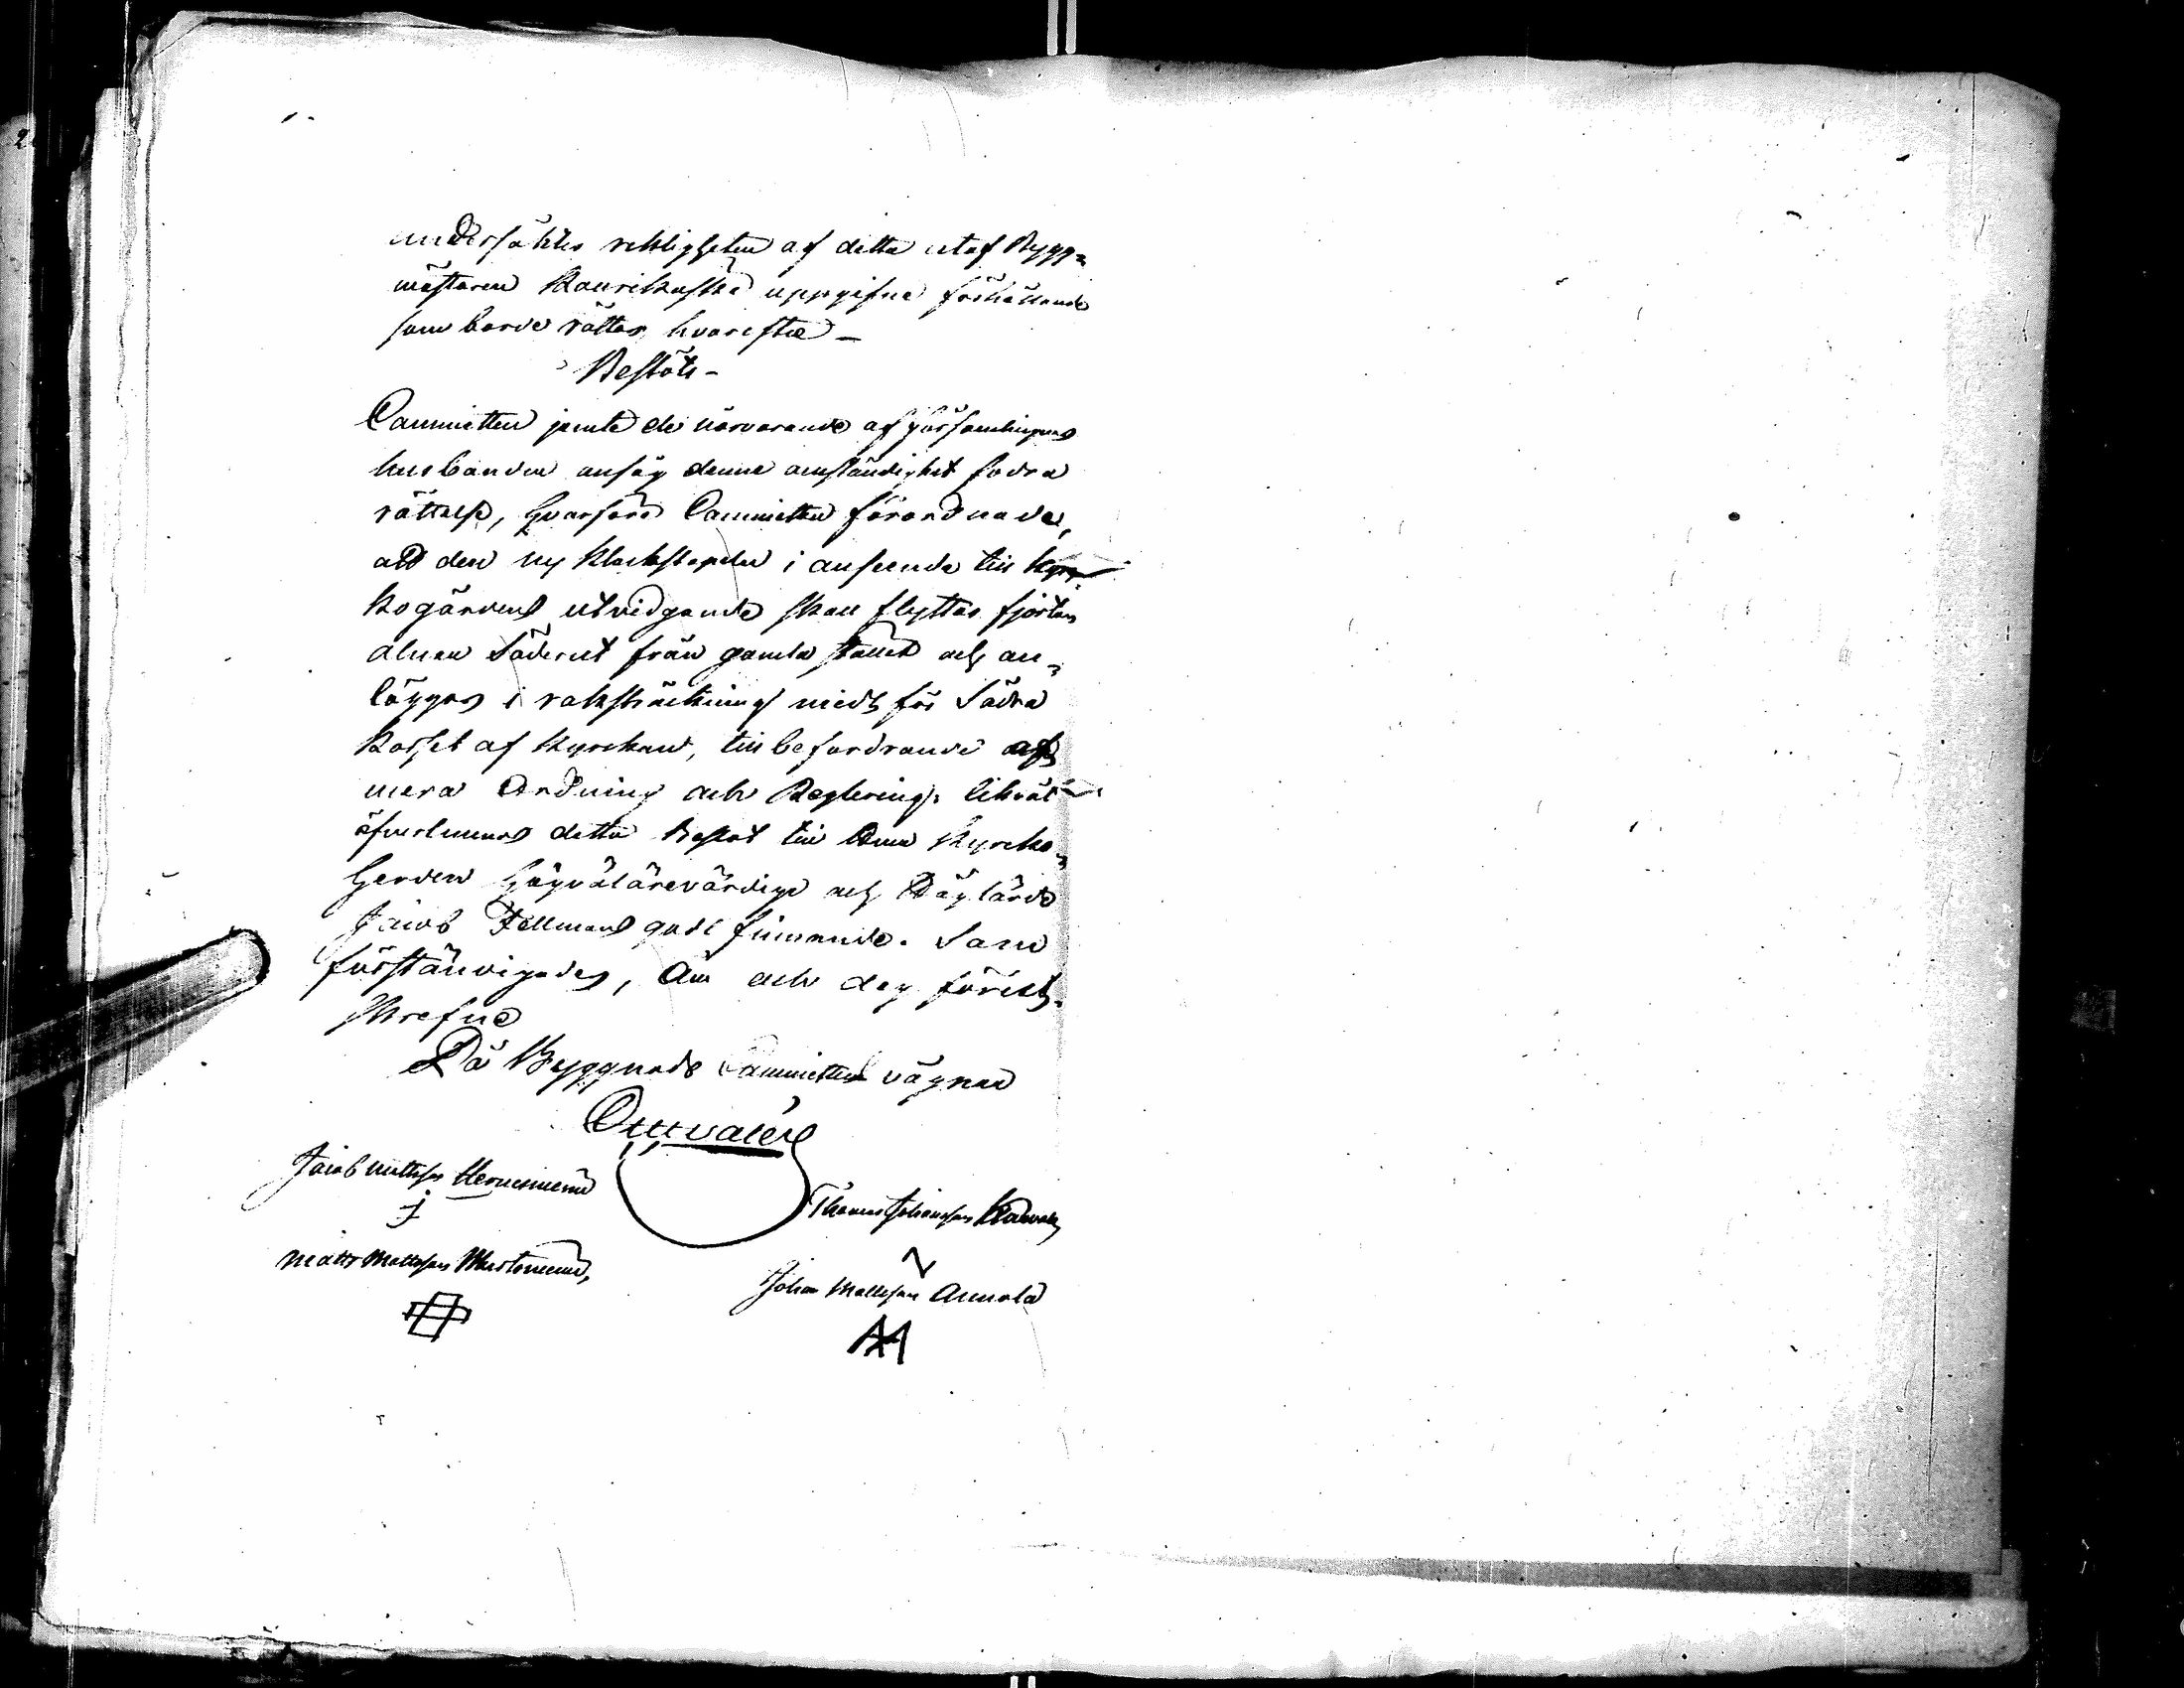 undersöktes riktigheten af detta utaf Bygg=
mästaren Kaurikoski uppgifne förhållande
som borde rättas, hvarefter —
Beslöts -
Committen jemte de närvarande af församlingens
husbönder ansåg denne omständighet fodra
rättelse, hvarföre Committen förordnade,
att den ny Klockstapeln i anseende till Kyr=
kogårdens utvidgande skall flyttas fjorton
alnar Söderut från gamla stället och an=
läggas i raksträckning midt för Södra
Korset af Kyrckan, till befordrande af
mera Ordning och Reglering: likväl
öfverlemnas detta beslut till Kyrcko=
Herden Högvälärevärdige och Höglärde
Jacob Fellmans godt finnande. Som
förständigades, År och dag förut=
skrefne
På Byggnads Committens vägnar
Jacob Mattsson Hernesniemi
Thomas Johansson
Matts Mattsson
Johan Mattsson Annala